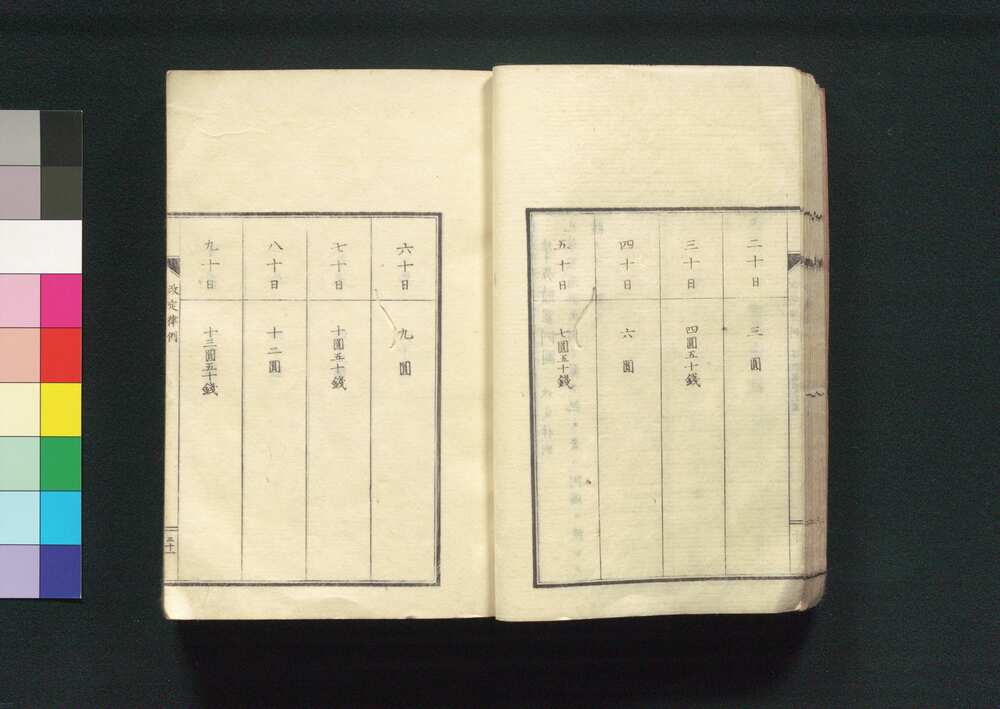 二十日 三圓
三十日 四圓五十錢
四十日 六圓
五十日 七圓五十錢
六十日 九圓
七十日 十圓五十錢
八十日 十二圓
九十日 十三圓五十錢
改定律例